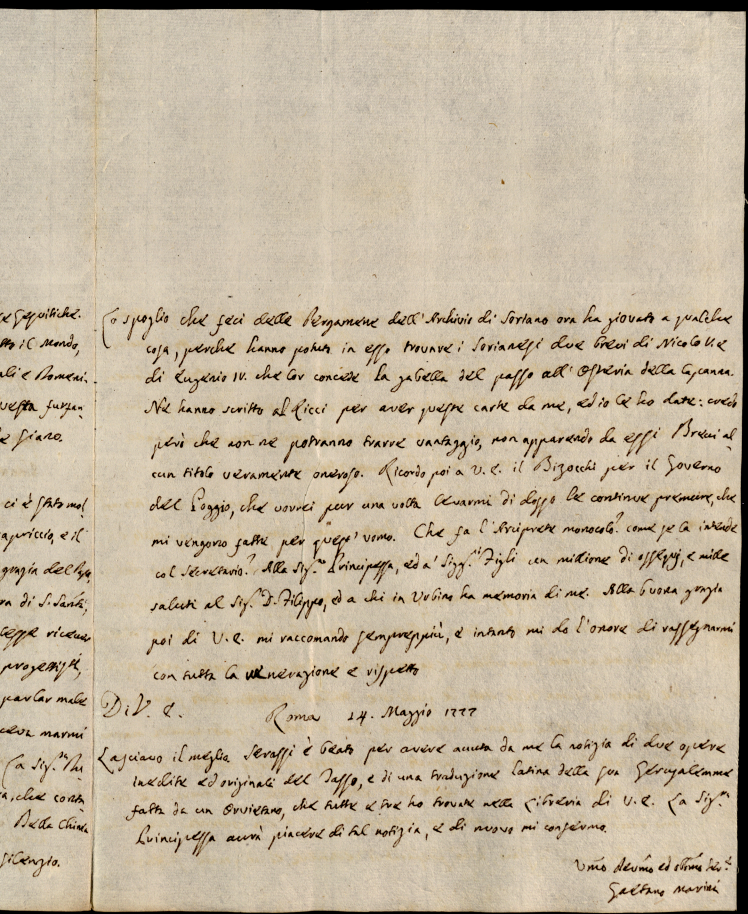 e Gesuitiche.
tto il Mondo,
ali e Romani.
uesta fusan
e Giano.
ci è stato mol
apriccio, e il
grazia del Papa,
ra di S. Santità,
progettisti,
parlar male
ceva Marmi
La Sig.ra
a, che conta
Bella China
silenzio.
Lo spoglio che feci delle Pergamene dell'Archivio di Soriano ora ha giovato a qualche
cosa, perche hanno potuto in esso trovare i Sorianesi due brevi di Nicolò V. e
di Eugenio IV. che lor concede la gabella del passo all'Osteria della Capanna.
Ne hanno scritto al Ricci per aver queste carte da me, ed io le ho date: credo
però che non ne potranno trarre vantaggio, non apparendo da essi Brevi al
cun titolo veramente oneroso. Ricordo poi a V. E. il Bizocchi per il Governo
del Poggio, che vorrei pur una volta levarmi di dosso le continue premure, che
mi vengono fatte per quest'uomo. Che fa l'Arciprete monocolo? come se la intende
col Secretario? Alla Sig.ra Principessa, ed a' Sigg.ri Figli un millione di ossequj, e mille
saluti al Sig.r D. Filippo, ed a chi in Urbino ha memoria di me. Alla buona grazia
poi di V. E. mi raccomando sempreppiù, e intanto mi do l'onore di rassegnarmi
con tutta la venerazione e rispetto
Di V. E. Roma 14. Maggio 1777
Lasciavo il meglio. Serassi è beato per avere avuta da me la notizia di due opere
inedite ed originali del Tasso, e di una traduzione latina della sua Gerusalemme
fatta da un Orvietano, che tutte e tre ho trovate nella Libreria di V. E. La Sig.ra
Principessa avrà piacere di tal notizia, e di nuovo mi confermo.
Umo devmo ed obbmo Ser.re
Gaetano Marini